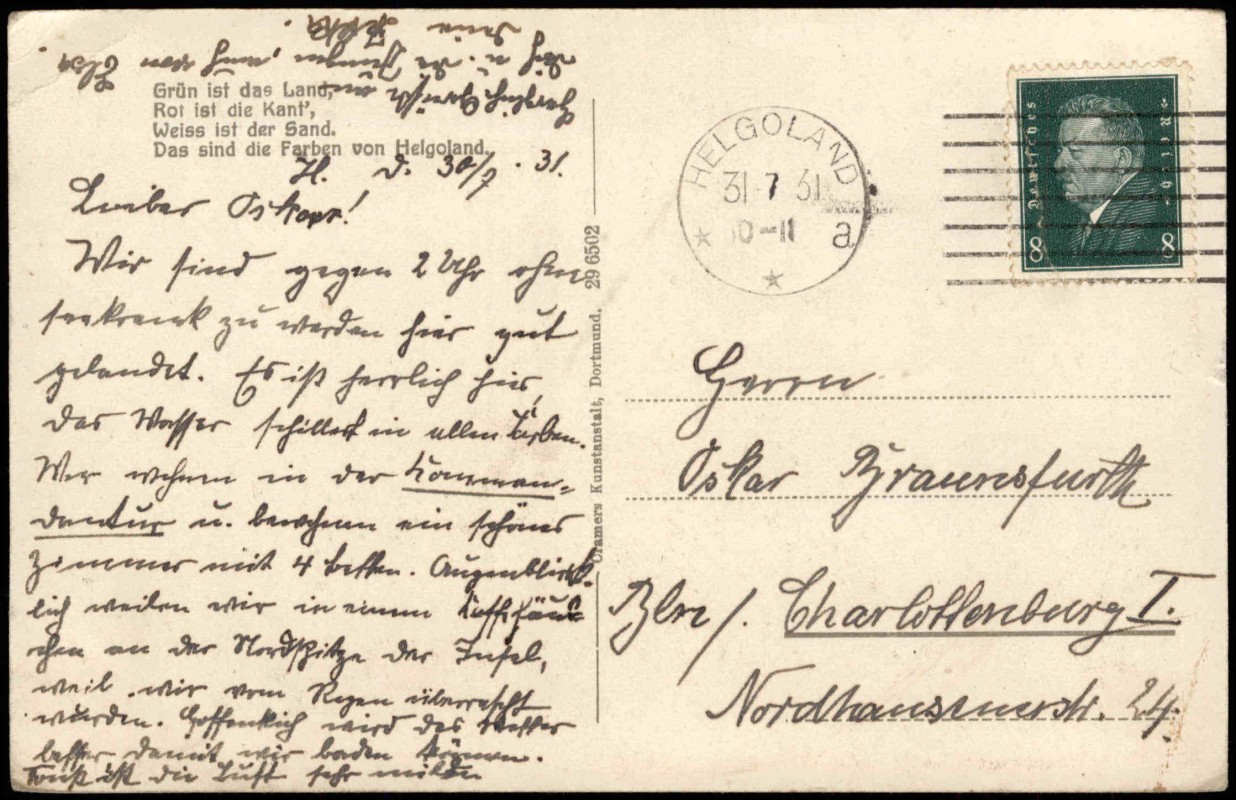 Grün ist das Land,
Rot ist die Kant',
Weiss ist der Sand.
Das sind die Farben von Helgoland.
H. d. 30/7. 31.
Lieber Oskar!
Wir sind gegen 2 Uhr ohne
seekrank zu werden hier gut
gelandet. Es ist herrlich hier,
das Wasser schillert in allen Farben.
Wir wohnen in der Komman-
dantur u. bewohnen ein schönes
Zimmer mit 4 Betten. Augenblick-
lich weilen wir in einem Kaffeehäus-
chen an der Nordspitze der Insel,
weil wir vom Regen überrascht
wurden. Hoffentlich wird das Wetter
besser damit wir baden können.
Sonst ist die Luft sehr milde
Herzliche Grüsse an
Dich u. die Jungen, auch von
Deine
Cramers Kunstanstalt, Dortmund. 29 6502
HELGOLAND
31 7 31
10-11 a
Deutsches Reich
8 8
Herrn
Oskar Braunsfurth
Bln/. Charlottenburg I.
Nordhausenerstr. 24.